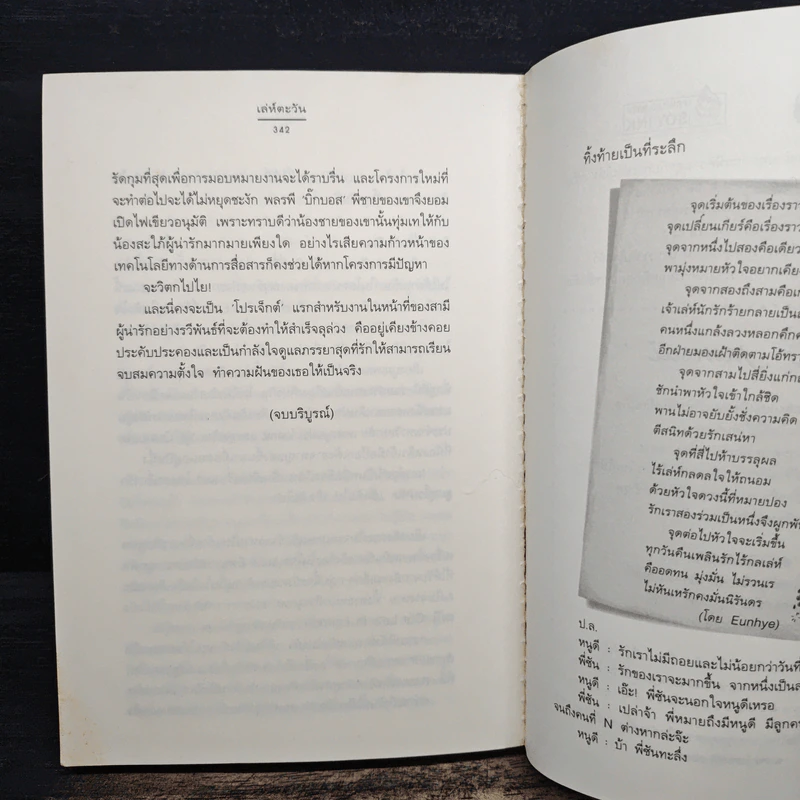 เล่ห์ตะวัน
342
รัดกุมที่สุดเพื่อการมอบหมายงานจะได้ราบรื่น และโครงการใหม่ที่
จะทำต่อไปจะได้ไม่หยุดชะงัก พลรพี ‘บิ๊กบอส’ พี่ชายของเขาจึงยอม
เปิดไฟเขียวอนุมัติ เพราะทราบดีว่าน้องชายของเขานั้นทุ่มเทให้กับ
น้องสะใภ้ผู้น่ารักมากมายเพียงใด อย่างไรเสียความก้าวหน้าของ
เทคโนโลยีทางด้านการสื่อสารก็คงช่วยได้หากโครงการมีปัญหา
จะวิตกไปไย!
และนี่คงจะเป็น ‘โปรเจ็กต์’ แรกสำหรับงานในหน้าที่ของสามี
ผู้น่ารักอย่างรวีพันธ์ที่จะต้องทำให้สำเร็จลุล่วง คืออยู่เคียงข้างคอย
ประคับประคองและเป็นกำลังใจดูแลภรรยาสุดที่รักให้สามารถเรียน
จบสมความตั้งใจ ทำความฝันของเธอให้เป็นจริง
(จบบริบูรณ์)
ทิ้งท้ายเป็นที่ระลึก
จุดเริ่มต้นของเรื่องราว
จุดเปลี่ยนเกียร์คือเรื่องราว
จุดจากหนึ่งไปสองคือเดียว
พามุ่งหมายหัวใจอยากเคียง
จุดจากสองถึงสามคือ
เจ้าเล่ห์นักรักร้ายกลายเป็น
คนหนึ่งแกล้งลวงหลอกคึก
อีกฝ่ายมองเฝ้าติดตามโอ้
จุดจากสามไปสี่ยิ่งแก่
ชักนำพาหัวใจเข้าใกล้ชิด
พานไม่อาจยับยั้งชั่งความคิด
ตีสนิทด้วยรักเสน่หา
จุดที่สี่ไปห้าบรรลุผล
ไร้เล่ห์กลดลใจให้ถนอม
ด้วยหัวใจดวงนี้ที่หมายปอง
รักเราสองร่วมเป็นหนึ่งจึงผูกพัน
จุดต่อไปหัวใจจะเริ่มขึ้น
ทุกวันคืนเพลินรักไร้กลเล่ห์
คืออดทน มุ่งมั่น ไม่รวนเร
ไม่หันเหรักคงมั่นนิรันดร
(โดย Eunhye)
ป.ล.
หนูดี : รักเราไม่มีถอยและไม่น้อยกว่าวันที่
พี่ซัน : รักของเราจะมากขึ้น จากหนึ่งเป็น
หนูดี : เอ๊ะ! พี่ซันจะนอกใจหนูดีเหรอ
พี่ซัน : เปล่าจ้า พี่หมายถึงมีหนูดี มีลูก
จนถึงคนที่ N ต่างหากล่ะจ๊ะ
หนูดี : บ้า พี่ซันทะลึ่ง